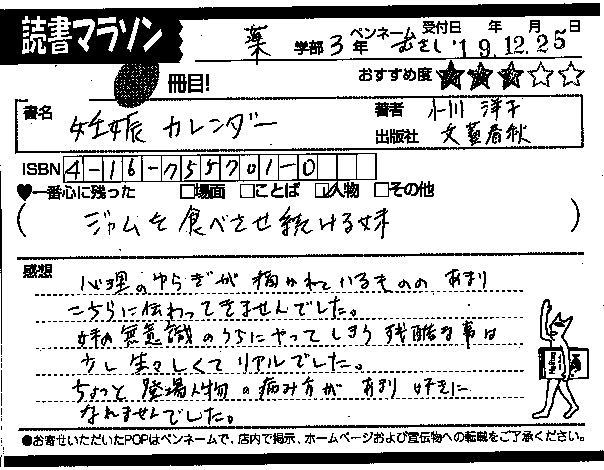 読書マラソン
薬 学部 3 年 ペンネーム むさし 受付日 年 月 日 '19.12.25
冊目!
おすすめ度 ★★★☆☆
書名 妊娠カレンダー
著者 小川 洋子
出版社 文藝春秋
ISBN 4-16-755701-0
♥一番心に残った □場面 □ことば ☑人物 □その他
(ジャムを食べさせ続ける妹)
感想
心理のゆらぎが描かれているものの あまり
こちらに伝わってきませんでした。
妹の無意識のうちにやってしまう残酷な事は
少し生々しくてリアルでした。
ちょっと登場人物の病み方が あまり好きに
なれませんでした。
●お寄せいただいたPOPはペンネームで、店内で掲示、ホームページおよび宣伝物への転載をご了承ください。